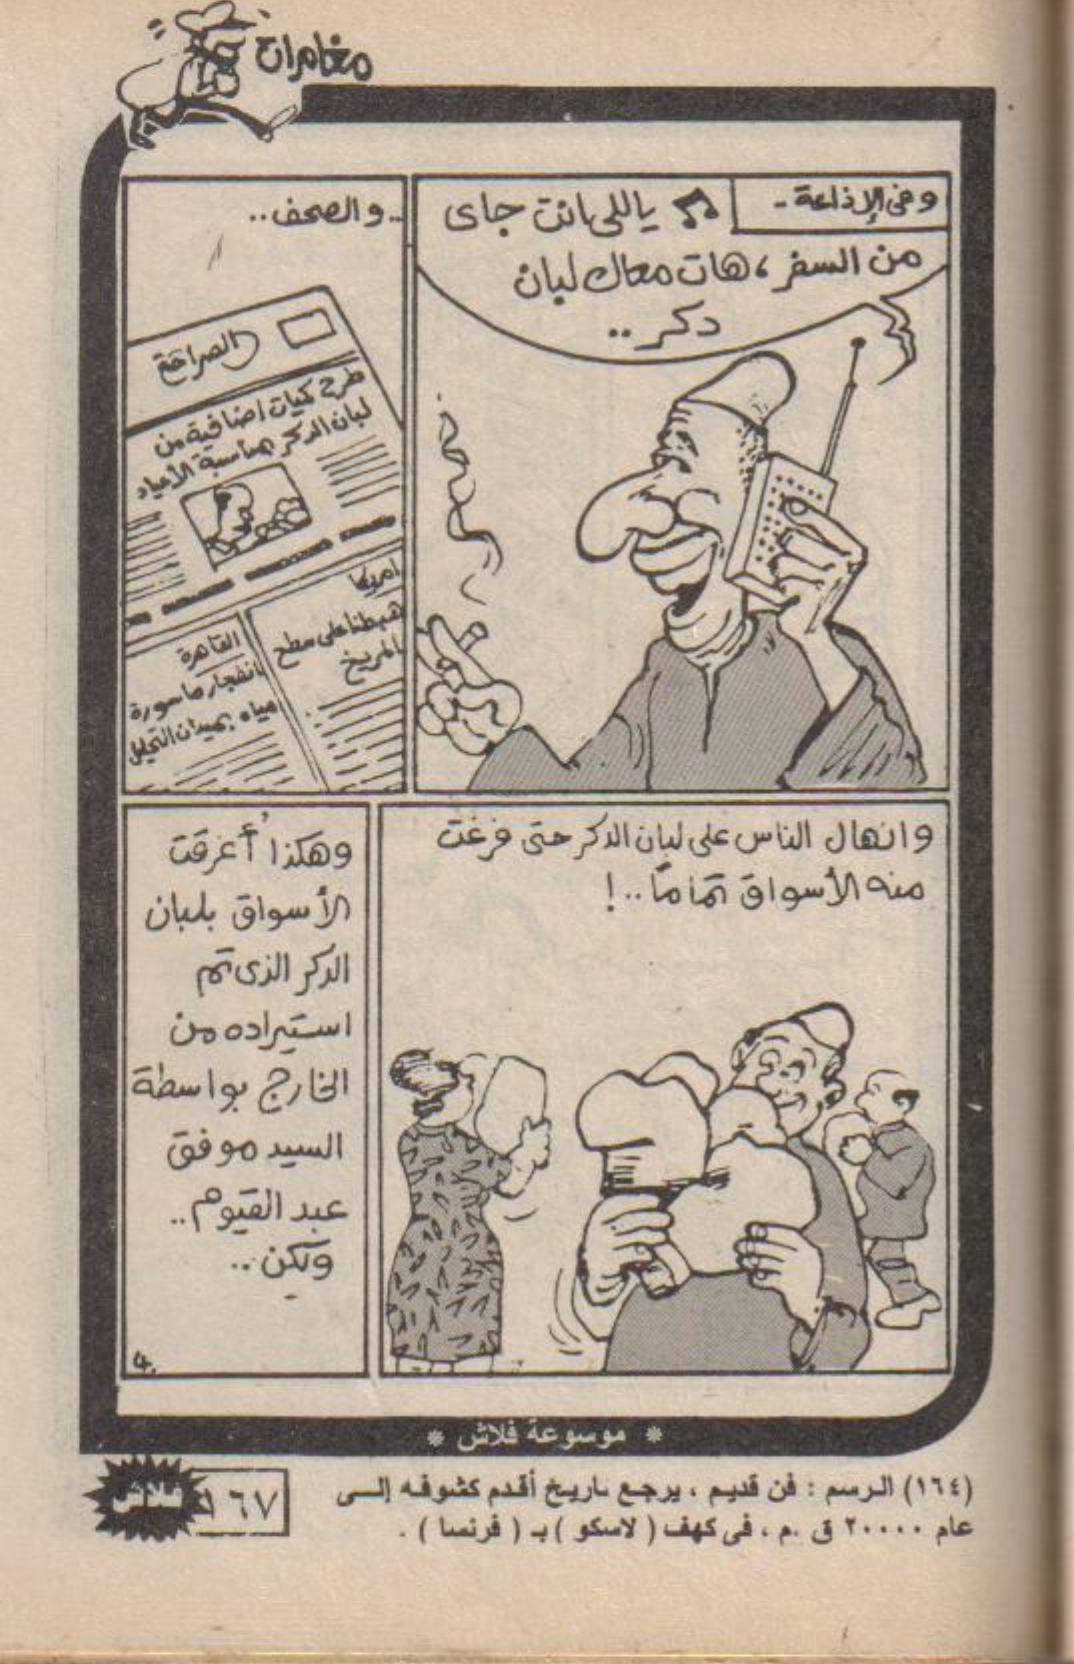 مغامرات
وفى الإذاعة -
ياللى انت جاى
من السفر ، هات معاك لبان
دكر ..
.. والصحف ..
الصراحة
طرح كميات اضافية من
لبان الدكر بمناسبة الأعياد
أمريكا
هبطنا على سطح
المريخ
القاهرة
انفجار ماسورة
مياه بميدان التحرير
وانهال الناس على لبان الدكر حتى فرغت
منه الأسواق تمامًا .. !
وهكذا أُغرقت
الأسواق بلبان
الدكر الذى تم
استيراده من
الخارج بواسطة
السيد موفق
عبد القيوم ..
ولكن ..
* موسوعة فلاش *
(١٦٤) الرسم : فن قديم ، يرجع تاريخ أقدم كشوفه إلى
عام ٢٠٠٠٠ ق .م ، فى كهف ( لاسكو ) بـ ( فرنسا ) .
١٦٧
فلاش